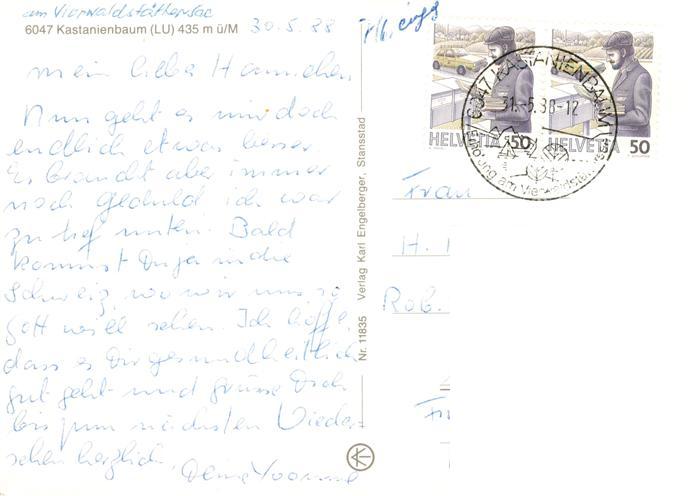 am Vierwaldstättersee
6047 Kastanienbaum (LU) 435 m ü/M
30.5.88
Mein liebes Hannchen,
Nun geht es mir doch
endlich etwas besser
Es braucht aber immer
noch Geduld ich war
zu tief unten. Bald
kommst Du ja in die
Schweiz, wo wir uns so
Gott will sehen. Ich hoffe,
dass es Dir gesundheitlich
gut geht und grüsse Dich
bis zum nächsten Wieder-
sehen herzlich,
Deine Yvonne
Nr. 11835 Verlag Karl Engelberger, Stansstad
HELVETIA 50
HELVETIA 50
6047 KASTANIENBAUM
31.-5.88-12
am Vierwaldstättersee
Frau
H.
Rob.